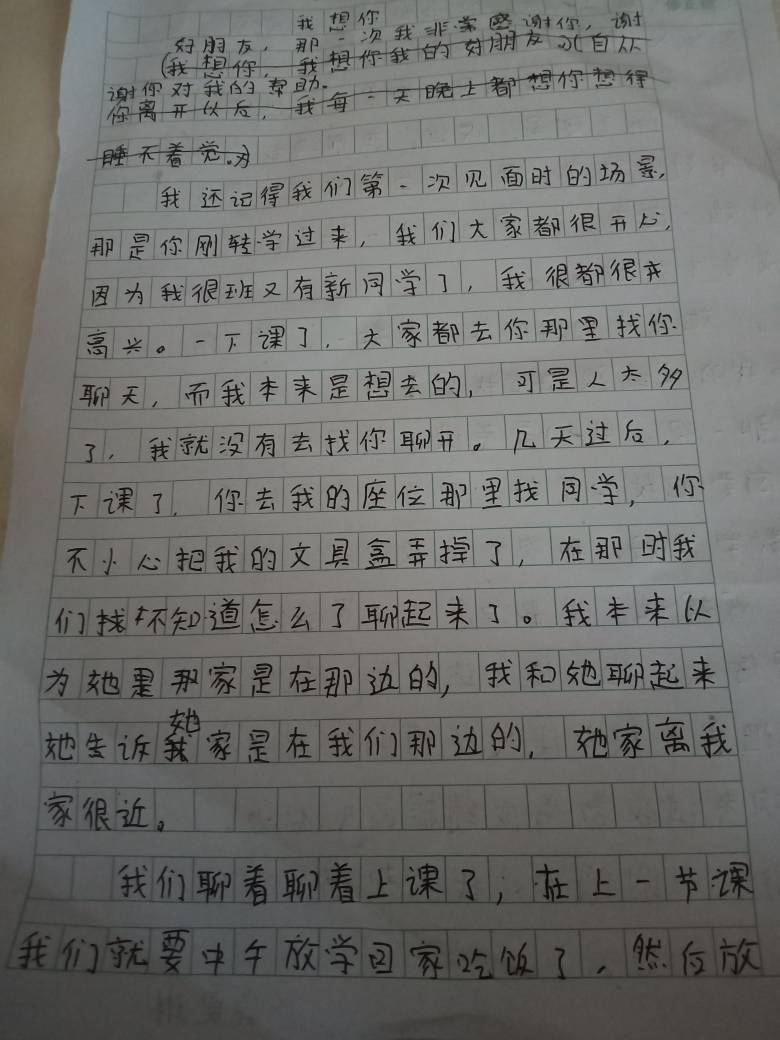 我想你
好朋友，那一次我非常感谢你，谢
(我想你，我想你我的好朋友 自从
谢你对我的帮助。
你离开以后，我每一天晚上都想你想得
睡不着觉。)
我还记得我们第一次见面时的场景，
那是你刚转学过来，我们大家都很开心，
因为我很班又有新同学了，我很都很开
高兴。一下课了，大家都去你那里找你
聊天，而我本来是想去的，可是人太多
了，我就没有去找你聊开。几天过后，
下课了，你去我的座位那里找同学，你
不小心把我的文具盒弄掉了，在那时我
们找不知道怎么了聊起来了。我本来以
为她里那家是在那边的，我和她聊起来
她告诉我她家是在我们那边的，她家离我
家很近。
我们聊着聊着上课了，在上一节课
我们就要中午放学回家吃饭了，然后放